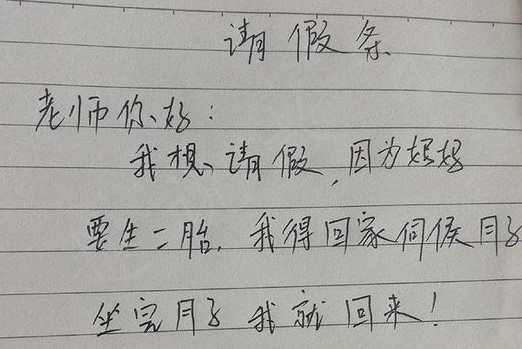 请假条
老师你好：
我想请假，因为妈妈
要生二胎，我得回家伺候月子
坐完月子我就回来！